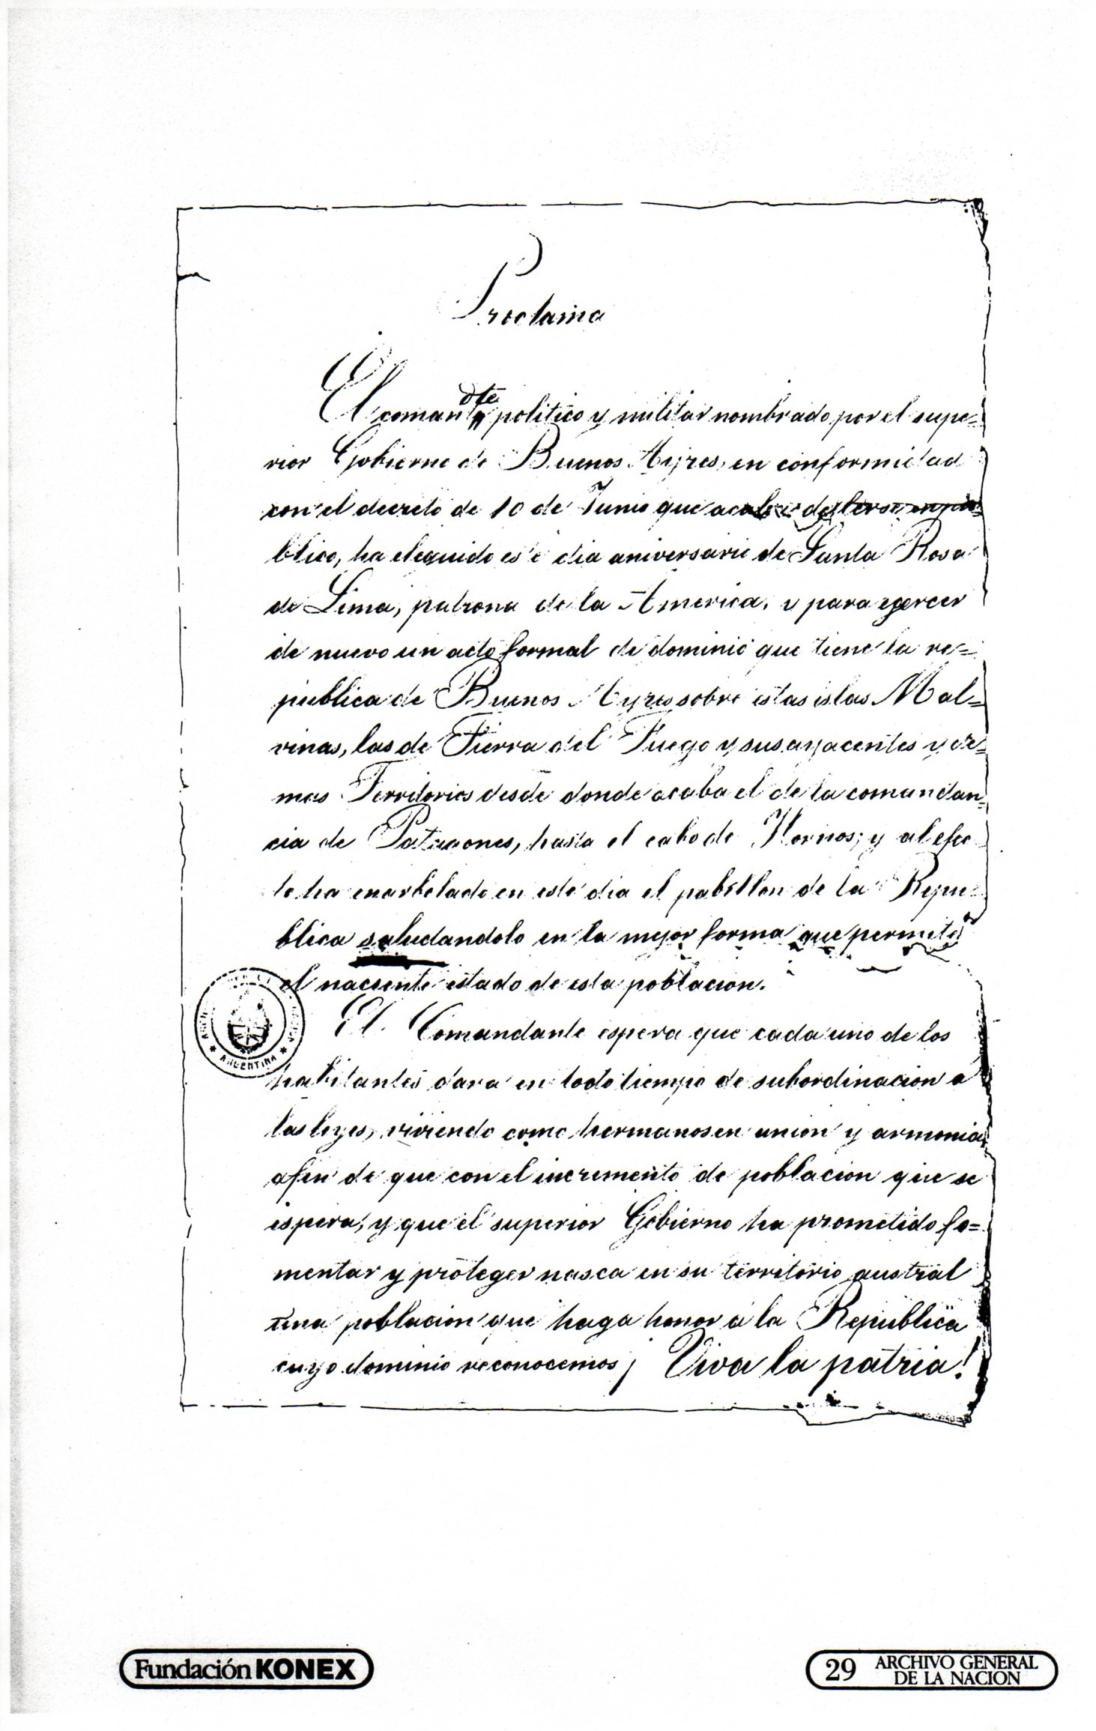 Proclama
El comandte politico y militar nombrado por el supe=
rior Gobierno de Buenos Ayres, en conformidad
con el decreto de 10 de Junio que acaba de
blico, ha eleguido este dia aniversario de Santa Rosa
de Lima, patrona de la America, para egercer
de nuevo un acto formal de dominio que tiene la re=
publica de Buenos Ayres sobre estas islas Mal=
vinas, las de Tierra del Fuego y sus ayacentes y de=
mas Territorios desde donde acaba el de la comandan=
cia de Patagones, hasta el cabo de Hornos; y al efec
to ha enarbolado en este dia el pabellon de la Repu=
blica saludandolo en la mejor forma que permite
el naciente estado de esta poblacion.
El Comandante espera que cada uno de los
habitantes dara en todo tiempo de subordinacion a
las leyes, viviendo como hermanos en union y armonia,
afin de que con el incremento de poblacion que se
espera, y que el superior Gobierno ha prometido fo=
mentar y proteger nasca en su territorio austral
una poblacion que haga honor a la Republica
cuyo dominio reconocemos ¡ Viva la patria!
ARGENTINA
Fundación KONEX
29 ARCHIVO GENERAL
DE LA NACION